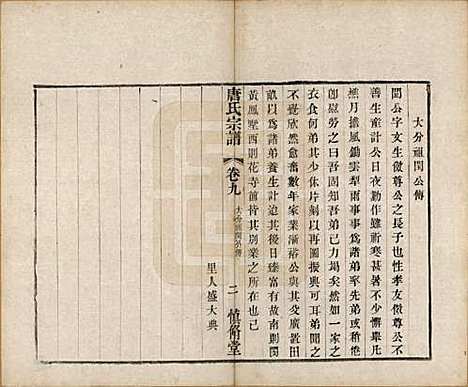 大分祖閏公傳
閏公字友生徵尊公之長子也性孝友徵尊公不
善生產計公日夜勤作雖祈寒甚暑不少懈舉凡
樵月擔風鋤雲犁雨事事爲諸弟率先弟或稍倦
卽慰勞之曰吾固知吾弟已力竭矣然如一家之
衣食何弟其少休片刻以再圖振興可也弟聞之
不覺欣然愈奮數年家業漸裕公與其父廣置田
畝以爲諸弟養生計迨其後日臻富有故南則閔
黃鳳墅西則花寺前皆其別業之所在也已
里人盛大典
唐氏宗譜
卷九
大分祖閏公傳
二
慎脩堂